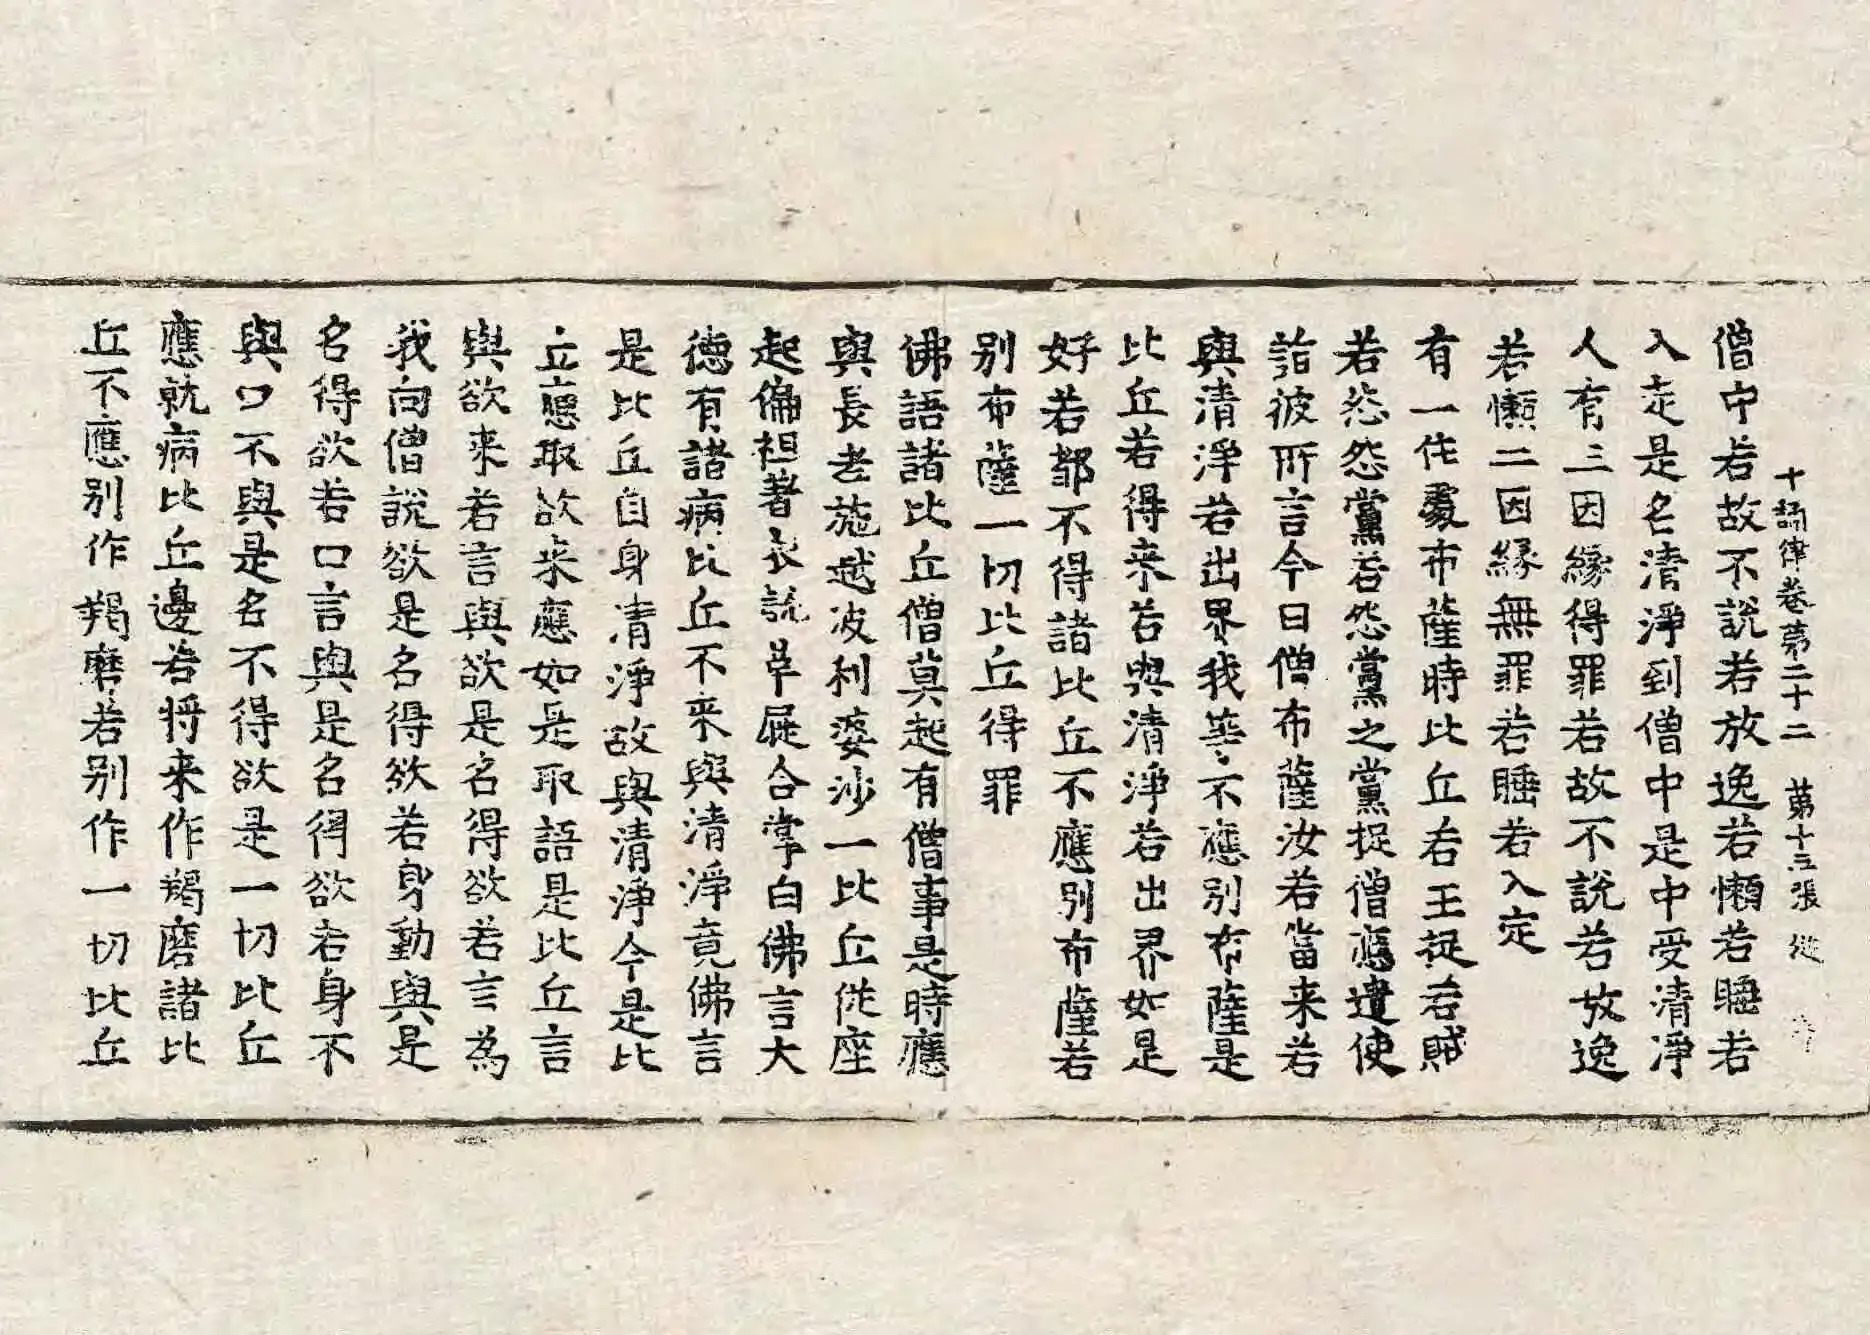 十誦律卷第二十二 第十五張
僧中若故不說若放逸若懶若睡若
入定是名清淨到僧中是中受清淨
人有三因緣得罪若故不說若放逸
若懶二因緣無罪若睡若入定
有一住處布薩時比丘若王捉若賊
若怨怨黨若怨黨之黨捉僧應遣使
詣彼所言今日僧布薩汝若當来若
與清淨若出界我等不應別布薩是
比丘若得来若與清淨若出界如是
好若都不得諸比丘不應別布薩若
別布薩一切比丘得罪
佛語諸比丘僧莫起有僧事是時應
與長老施越波利婆沙一比丘從座
起偏袒著衣說革屣合掌白佛言大
德有諸病比丘不来與清淨竟佛言
是比丘自身清淨故與清淨今是比
丘應取欲来應如是取語是比丘言
與欲来若言與欲是名得欲若言為
我向僧說欲是名得欲若身動與是
名得欲若口言與是名得欲若身不
與口不與是名不得欲是一切比丘
應就病比丘邊若將来作羯磨諸比
丘不應別作羯磨若別作一切比丘